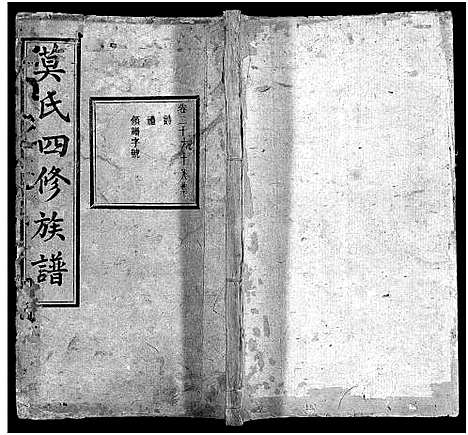 莫氏四修族譜
卷二十六
詩
禮
領譜字號